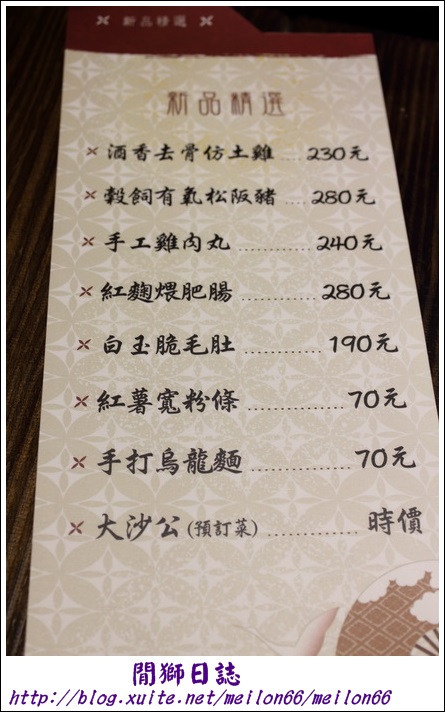 新品精選
新品精選
酒香去骨仿土雞 .... 230元
穀飼有氣松阪豬 ...... 280元
手工雞肉丸 .............. 240元
紅麴煨肥腸 ............ 280元
白玉脆毛肚 ............ 190元
紅薯寬粉條 .............. 70元
手打烏龍麵 .............. 70元
大沙公(預訂菜) ............ 時價
閒獅日誌
http://blog.xuite.net/meilon66/meilon66